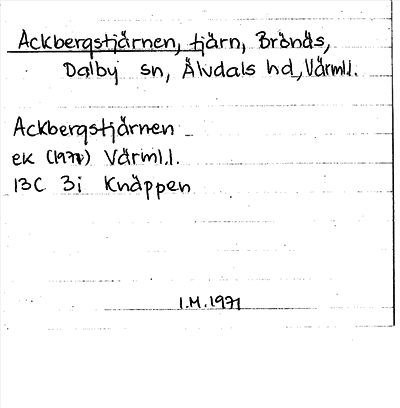 Ackbergstjärnen, tjärn, Brånäs,
Dalby sn, Älvdals hd, Värml.
Ackbergstjärnen
ek (1971) Värml.l.
13C 3i Knäppen
I.M. 1971